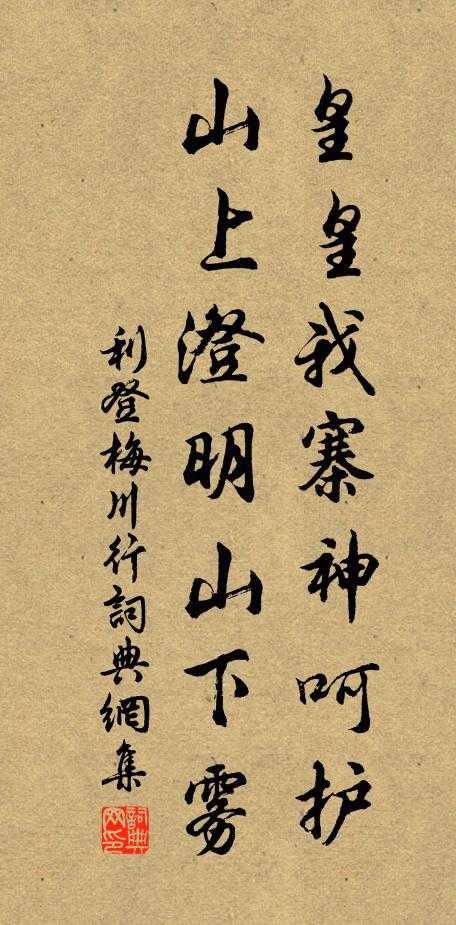 皇皇我寨神呵护
山上澄明山下雾
利登梅川行詞典網集
詞典网印